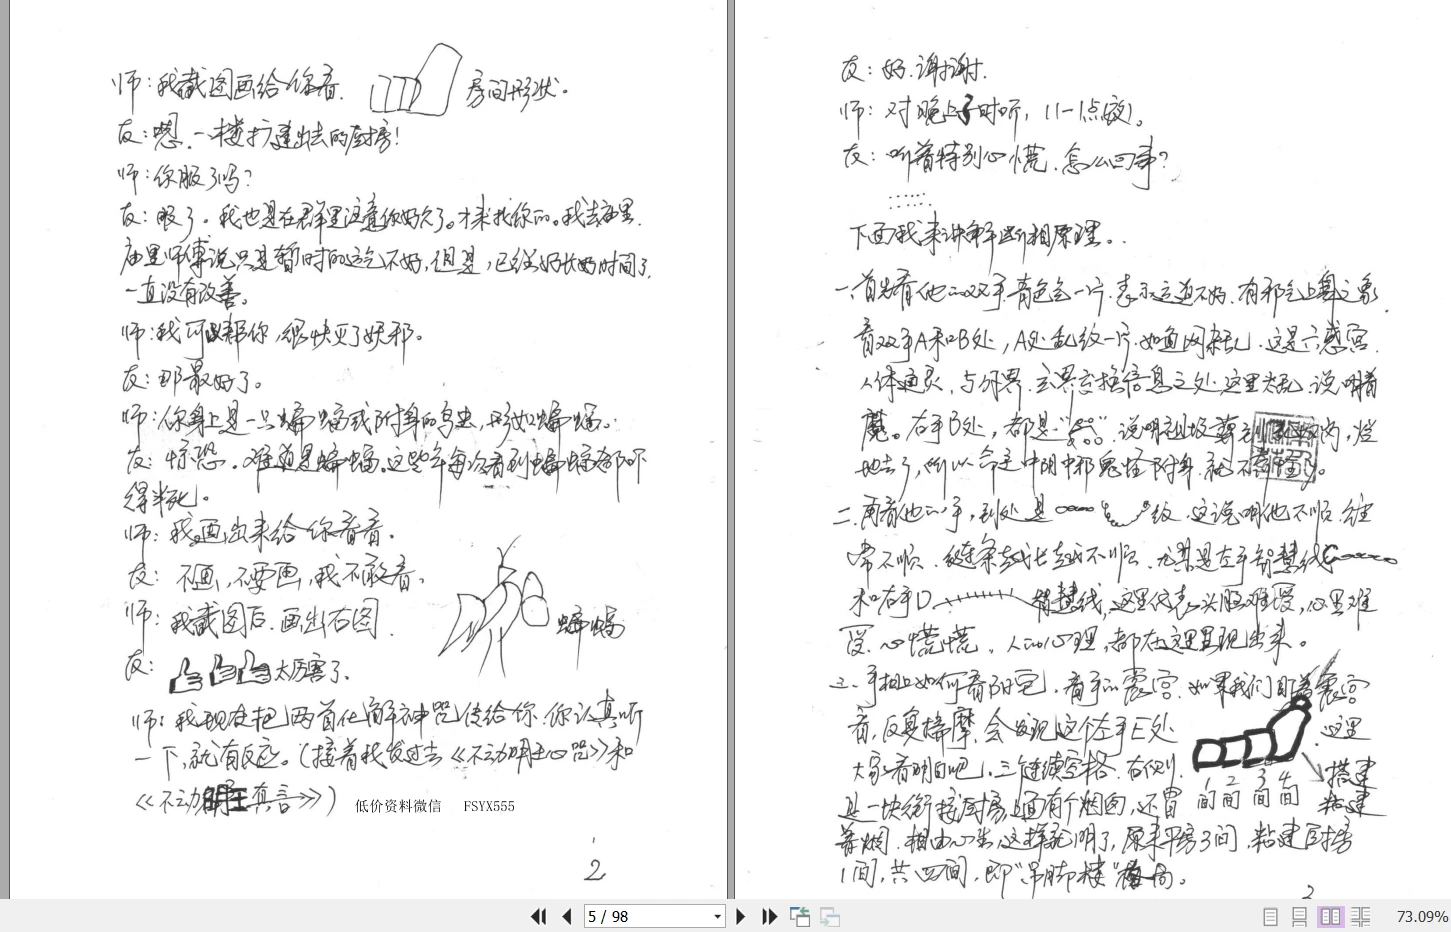 师：我截图画给你看. 房间形状。
友：嗯. 一楼扩建出去的厨房！
师：你服了吗？
友：服了。我也是在群里注意你好久了。才来找你的。我去庙里.
庙里师傅说只是暂时的运气不好，但是，已经好长好时间了.
一直没有改善。
师：我可以帮你，很快灭了妖邪。
友：那最好了。
师：你身上是一只蝙蝠或附身的鸟虫，形如蝙蝠。
友：惊恐。难道是蝙蝠。这些年每次看到蝙蝠都吓
得半死。
师：我画出来给你看看.
友：不画，不要画，我不敢看。
师：我截图后. 画出右图.
蝙蝠
友：太厉害了.
师：我现在把两首化解神咒传给你. 你认真听
一下，就有反应。（接着我发过去《不动明王心咒》和
《不动明王真言》）
低价资料微信 FSYX555
2
友：好. 谢谢.
师：对. 晚上子时听，11-1点做）。
友：听着特别心慌. 怎么回事？
......
下面我来讲解断相原理。.
一、首先看他的双手. 青色色一片. 表示运道不好. 有邪气上身之象.
看双手A和B处，A处乱纹一片. 如鱼网杂乱. 这是六感宫.
人体通灵，与外界. 玄界交换信息之处. 这里太乱. 说明着
魔。右手B处，都是“”. 说明祖坟
地去了，所以命运中阴中邪鬼怪附身. 就不奇怪了。
二. 再看他的手，到处是 纹. 这说明他不顺. 经
常不顺. 链条越长越不顺. 尤其是左手智慧线
和右手D 智慧线，这里代表头脑难受，心里难
受. 心慌慌. 人的心理，都在这里显现出来。
三、手相上如何看阳宅. 看手的震宫. 如果我们盯着震宫
看，反复揣摩. 会发现这个左手E处. 这里
大家看明白吧. 三个连续空格. 右侧. 搭建
1间 2间 3间 4间 粘建
是一块衔接厨房，上面有个烟囱，还冒
着烟. 相由心生，这样就明了，原来平房3间，粘建厨房
1间，共四间，即“吊脚楼”格局。
3
5 / 98
73.09%